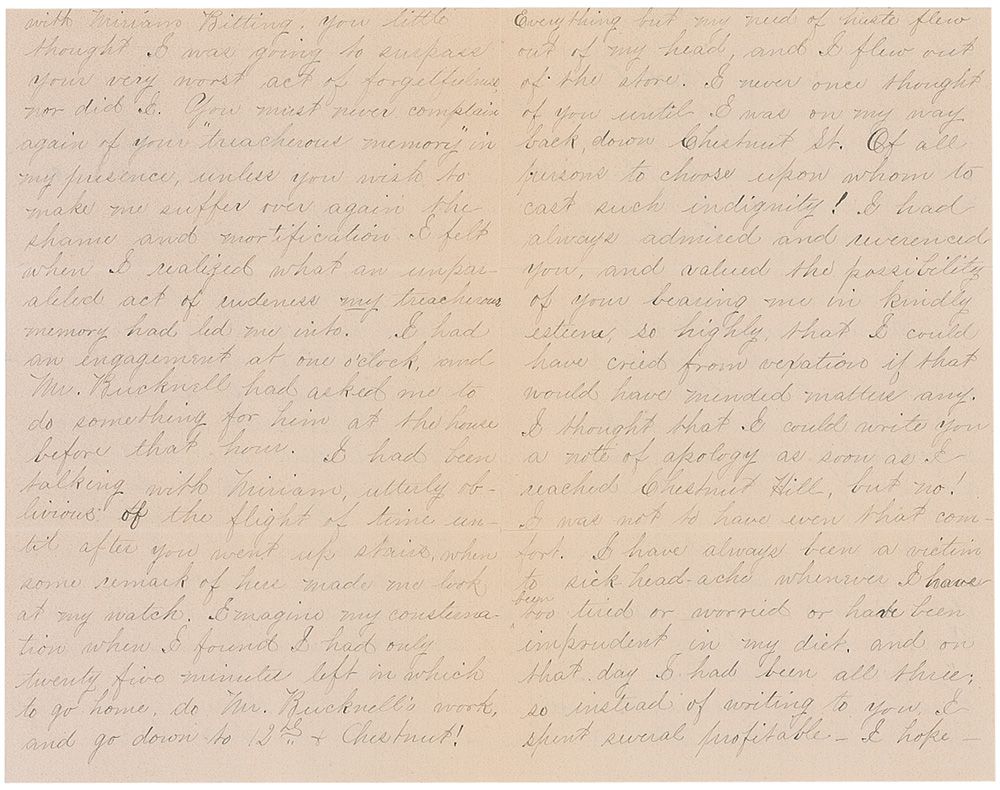 with Miriam Bitting. You little
thought I was going to surpass
your very worst act of forgetfulness,
nor did I. You must never complain
again of your "treacherous memory" in
my presence, unless you wish to
make me suffer over again the
shame and mortification I felt
when I realized what an unpar-
aleled act of rudeness my treacherous
memory had led me into. I had
an engagement at one o'clock, and
Mr. Bucknell had asked me to
do something for him at the house
before that hour. I had been
talking with Miriam, utterly ob-
livious of the flight of time un-
til after you went up stairs, when
some remark of hers made me look
at my watch. Imagine my consterna-
tion when I found I had only
twenty five minutes left in which
to go home, do Mr. Bucknell's work,
and go down to 12th & Chestnut!
Everything but my need of haste flew
out of my head, and I flew out
of the store. I never once thought
of you until I was on my way
back, down Chestnut St. Of all
persons to choose upon whom to
cast such indignity! I had
always admired and reverenced
you, and valued the possibility
of your bearing me in kindly
esteem, so highly, that I could
have cried from vexation if that
would have mended matters any.
I thought that I could write you
a note of apology as soon as I
reached Chestnut Hill, but no!
I was not to have even that com-
fort. I have always been a victim
to sick head-ache whenever I have
been too tired or worried or have been
imprudent in my diet, and on
that day I had been all three;
so instead of writing to you, I
spent several profitable – I hope –